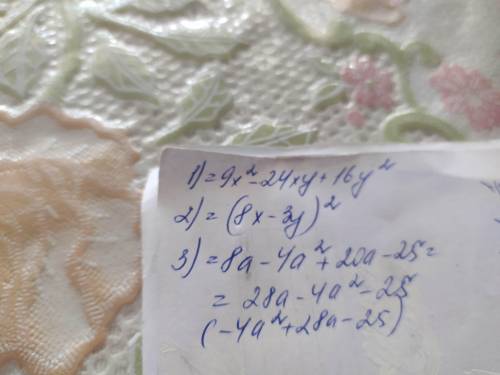 1) = 9x² - 24xy + 16y²
2) = (8x - 3y)²
3) = 8a - 4a² + 20a - 25 =
= 28a - 4a² - 25
(-4a² + 28a - 25)